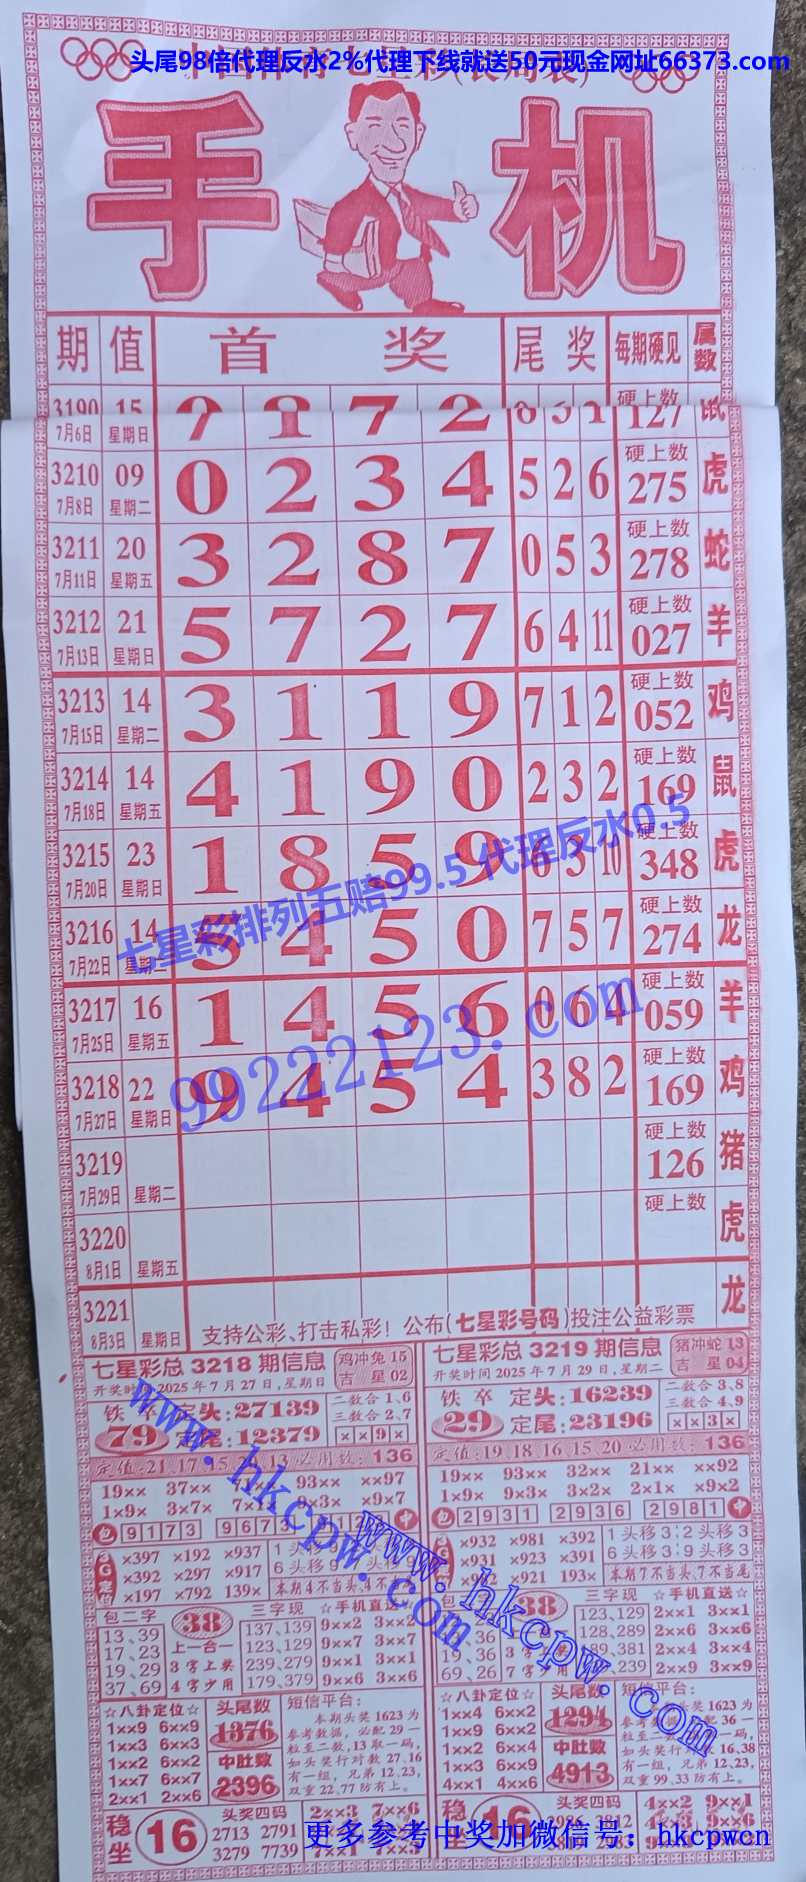 头尾98倍代理反水2%代理下线就送50元现金网址66373.com
手 机
期 值 首 奖 尾 奖 每期硬见 属数
3190 15 9 1 7 2 硬上数 鼠
7月6日 星期日 127
3210 09 0 2 3 4 5 2 6 硬上数 虎
7月8日 星期二 275
3211 20 3 2 8 7 0 5 3 硬上数 蛇
7月11日 星期五 278
3212 21 5 7 2 7 6 4 11 硬上数 羊
7月13日 星期日 027
3213 14 3 1 1 9 7 1 2 硬上数 鸡
7月15日 星期二 052
3214 14 4 1 9 0 2 3 2 硬上数 鼠
7月18日 星期五 169
3215 23 1 8 5 9 6 3 10 硬上数 虎
7月20日 星期日 348
七星彩排列五赔99.5 代理反水0.5
3216 14 5 4 5 0 7 5 7 硬上数 龙
7月22日 星期二 274
3217 16 1 4 5 6 0 6 4 硬上数 羊
7月25日 星期五 059
99222123.com
3218 22 9 4 5 4 3 8 2 硬上数 鸡
7月27日 星期日 169
3219 硬上数 猪
7月29日 星期二 126
3220 硬上数 虎
8月1日 星期五
3221 龙
8月3日 星期日 支持公彩、打击私彩！公布(七星彩号码)投注公益彩票
七星彩总 3218 期信息 鸡冲兔 15
开奖时间 2025年7月27日,星期日 吉 星 02
铁 卒 定头:27139 二数合 1、6
79 定尾:12379 三数合 2、7
××9×
必用数: 136
19×× 37×× 93×× ××97
1×9× 3×7× 9×3× ×9×7
9173 967
3G定位
×397 ×192 ×937
×392 ×297 ×917
×197 ×792 139×
包二字 38 三字现 ☆手机直送☆
13、39 137、139 9××2
17、23 上一合一 123、129 9××7 3××7
19、29 3字上奖 239、279 9××1 3××1
37、69 4字少用 179、379 9××6 3××6
☆八卦定位☆ 头尾数 短信平台:
1××9 6××9 1376 本期头奖1623为
1××3 6××3 参考数据，必配29一
1××2 6××2 中肚数 粒至二数，13取一码，
1××7 6××7 2396 如头奖行对数27、16
2××1 2××6 有一组，兄弟12、23，
双重22、77防有上。
稳坐 16 头奖四码 2××3 7××6
2713 2791
3279 7739 7××1 7××3
七星彩总 3219 期信息 猪冲蛇 13
开奖时间 2025年7月29日,星期二 吉 星 04
铁 卒 定头:16239 二数合 3、8
29 定尾:23196 三数合 4、9
××3×
定值:19、18、16、15、20 必用数: 136
19×× 93×× 32×× 21×× ××92
1×9× 9×3× 3×2× 2×1× ×9×2
2931 2936 2981
×932 ×981 ×392 1头移3:2头移3
×931 ×923 ×391 6头移3:9头移3
×921 193× 本期7不当头、7不当尾
38 三字现 ☆手机直送☆
123、129 2××1 3××1
128、289 2××6 3××6
19、36 189、381 2××4 3××4
69、26 7字少用 2××9 3××9
☆八卦定位☆ 头尾数 短信平台:
1××4 6××2 1294 本期头奖1623为
1××9 6××2 参考数据，必配36一
1××2 6××4 中肚数
1××3 6××9 4913 有一组，兄弟12、23，
4××1 4××6 双重99、33防有上。
稳坐 16 4××2 9××1
www.hkcpw.com
www.hkcpw.com
更多参考中奖加微信号：hkcpwcn